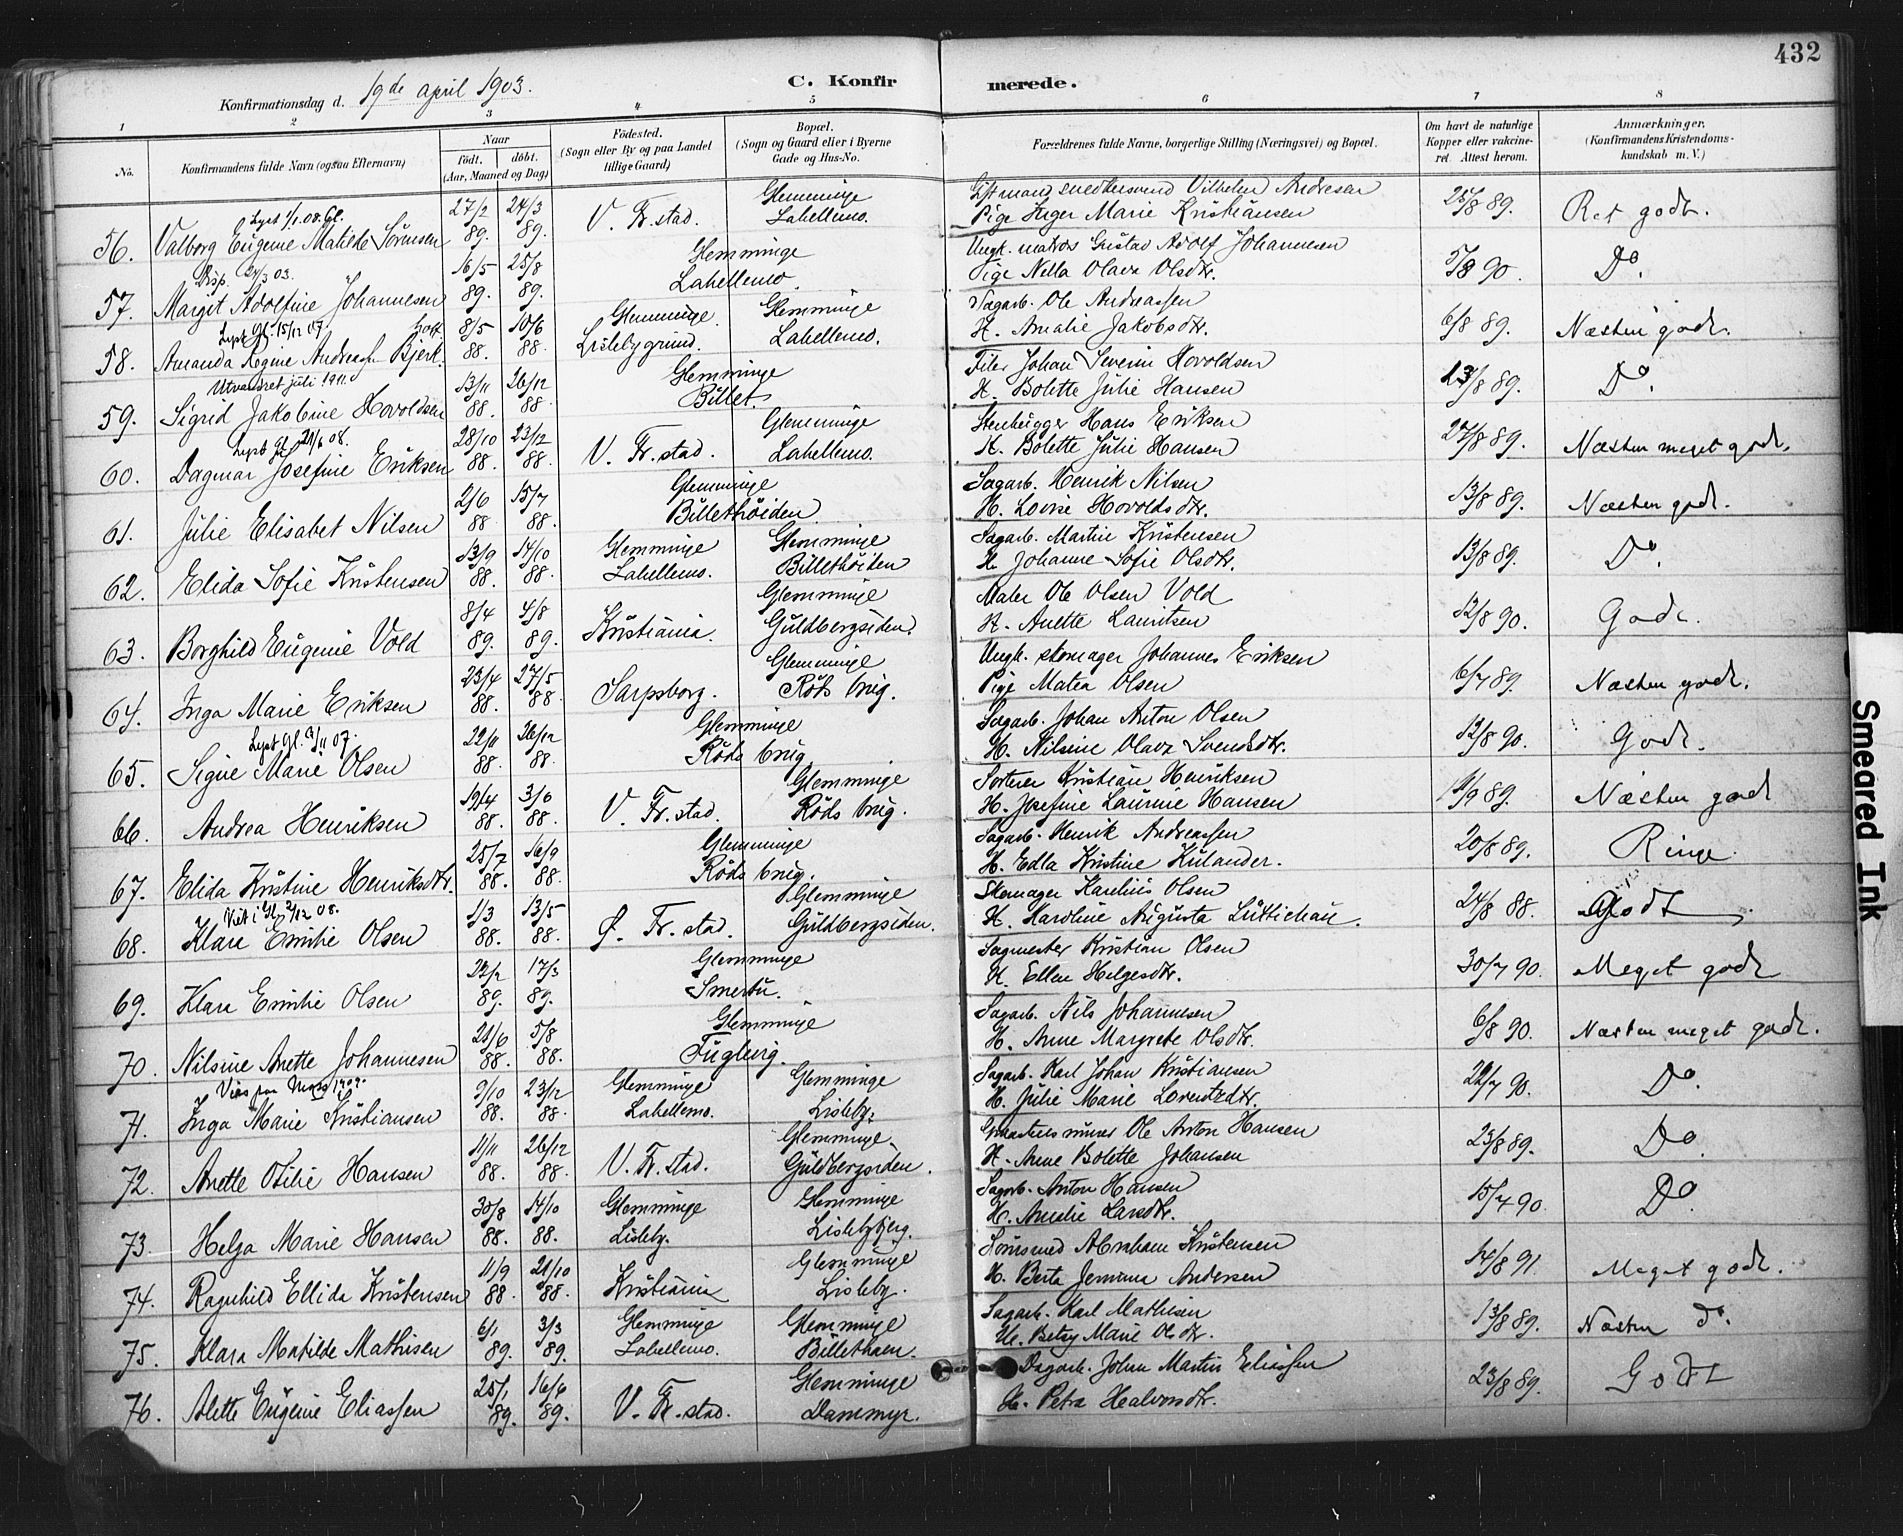 432
Konfirmationsdag d. 19de april 1903.
C. Konfirmerede.
1 2 3 4 5 6 7 8
No. Konfirmandens fulde Navn (ogsaa Efternavn) Naar født. døbt. (Aar, Maaned og Dag) Fødested. (Sogn eller By og paa Landet tillige Gaard) Bopæl. (Sogn og Gaard eller i Byerne Gade og Hus-No. Forældrenes fulde Navne, borgerlige Stilling (Næringsvei) og Bopæl. Om havt de naturlige Kopper eller vakcineret. Attest herom. Anmærkninger. (Konfirmandens Kristendomskundskab m. V.)
Lyst 1/1.08. Gl.
56. Valborg Eugenie Matilde Sørensen 27/2 89. 24/3 89. V. Fr.stad. Glemminge Labellemo. Gift mand smedsvend Vilhelm Andresen Pige Inger Marie Kristiansen 25/8 89. Ret godt.
Disp. 24/3 03.
57. Margit Adolfine Johannesen 16/5 89. 25/8 89. Glemminge Labellemo. Ungk. matros Gustav Adolf Johannesen Pige Nella Olava Olsdtr. 5/8 90. Do.
Lyst Gl. 15/12 07.
58. Amanda Ragne Andreassen Bjerk. 8/5 88. 10/6 88. Glemminge Lislebygrund. Glemminge Labellemo. Sagarb. Ole Andreassen H. Amalie Jakobsdtr. 6/8 89. Næsten godt.
Utvandret juli 1911.
59. Sigrid Jakobine Hovoldsen 13/11 88. 26/12 88 Glemminge Billet. Filer Johan Severin Hovoldsen H. Bolette Julie Hansen 23/8 89. Do.
Lyst Gl. 21/6 08.
60. Dagmar Josefine Eriksen 28/10 88. 23/12 88 V. Fr.stad. Glemminge Labellemo. Stenhugger Hans Eriksen H. Bolette Julie Hansen 27/8 89. Næsten meget godt.
61. Julie Elisabet Nilsen 2/6 88 15/7 88. Glemminge Billethøiden Sagarb. Henrik Nilsen H. Lovise Hovoldsdtr. 13/8 89. Næsten godt.
62. Elida Sofie Kristensen 13/9 88. 14/10 88. Glemminge Labellemo. Glemminge Billethøiden Sagarb. Martin Kristensen H. Johanne Sofie Olsdtr. 13/8 89. Do.
63. Borghild Eugenie Vold 8/4 89. 4/8 89. Kristiania. Glemminge Guldbergsiden. Maler Ole Olsen Vold H. Anette Lauritsen 12/8 90. Godt.
64. Inga Marie Eriksen 23/4 88. 27/5 88. Sarpsborg. Glemminge Røds brug. Ungk. skomager Johannes Eriksen Pige Matea Olsen 6/7 89. Næsten godt.
Lyst Gl. 3/11 07.
65. Signe Marie Olsen 22/11 88. 26/12 88. Glemminge Røds brug Sagarb. Johan Anton Olsen H. Nilsine Olava Svendsdtr. 12/8 90. Godt.
66. Andrea Henriksen 19/4 88. 3/6 88. V. Fr.stad. Glemminge Røds brug. Sorterer Kristian Henriksen H. Josefine Laurine Hansen 11/9 89. Næsten godt
67. Elida Kristine Henriksdtr. 25/7 88. 16/9 88. Glemminge Røds brug. Sagarb. Henrik Andreassen H. Edla Kristine Kulander. 20/8 89. Ringe.
Viet i Gl. 2/12 08.
68. Klara Emilie Olsen 1/3 88. 13/5 88. Ø. Fr.stad. Glemminge Guldbergsiden. Skomager Karelius Olsen H. Karoline Augusta Lüttichau. 24/8 88. Godt
69. Klara Emilie Olsen 22/2 89. 17/3 89. Glemminge Smertu. Sagmester Kristian Olsen H. Ellen Helgesdtr. 30/7 90. Meget godt
70. Nilsine Anette Johannesen 21/6 88. 5/8 88. Glemminge Fuglevig. Sagarb. Nils Johannesen H. Anne Margrete Olsdtr. 6/8 90. Næsten meget godt.
71. Inga Marie Kristiansen 9/10 88. 23/12 88. Glemminge Labellemo. Glemminge Lisleby. Sagarb. Karl Johan Kristiansen H. Julie Marie Lorentsdtr. 22/7 90. Do.
72. Anette Otilie Hansen 11/11 88. 26/12 88. V. Fr.stad. Glemminge Guldbergsiden. Graastensminer Ole Anton Hansen H. Anne Bolette Johansen 23/8 89. Do.
73. Helga Marie Hansen 30/8 88. 14/10 88. Glemminge Lisleby. Glemminge Lislebybjerg. Sagarb. Anton Hansen H. Amalie Larsdtr. 15/7 90. Do.
74. Ragnhild Ellida Kristensen 11/9 88. 21/10 88. Kristiania Glemminge Lisleby. Abraham Kristensen H. Berta Jemima Andersen 14/8 91. Meget godt.
75. Klara Matilde Mathisen 6/1 89. 3/3 89. Glemminge Labellemo. Glemminge Billethaen. Sagarb. Karl Mathisen H. Betsy Marie Olsdtr. 13/8 89. Næsten Do.
76. Alette Eugenie Eliassen 25/1 89. 16/6 89. V. Fr.stad. Glemminge Dammyr. Dagarb. Johan Martin Eliassen H. Petra Halvorsdtr. 23/8 89. Godt
Smeared Ink